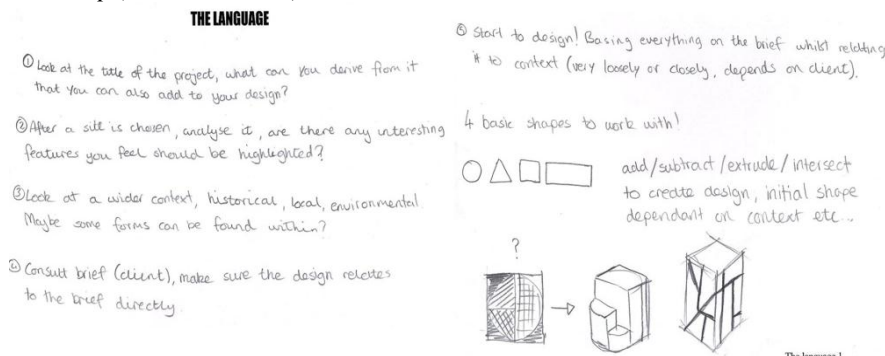 THE LANGUAGE
① Look at the title of the project, what can you derive from it
that you can also add to your design?
② After a site is chosen, analyse it, are there any interesting
features you feel should be highlighted?
③ Look at a wider context, historical, local, environmental
Maybe some forms can be found within?
④ Consult brief (client), make sure the design relates
to the brief directly.
⑤ Start to design! Basing everything on the brief whilst relating
it to context (very loosely or closely, depends on client).
4 basic shapes to work with!
add/subtract/extrude/intersect
to create design, initial shape
dependant on context etc...
?
The language 1